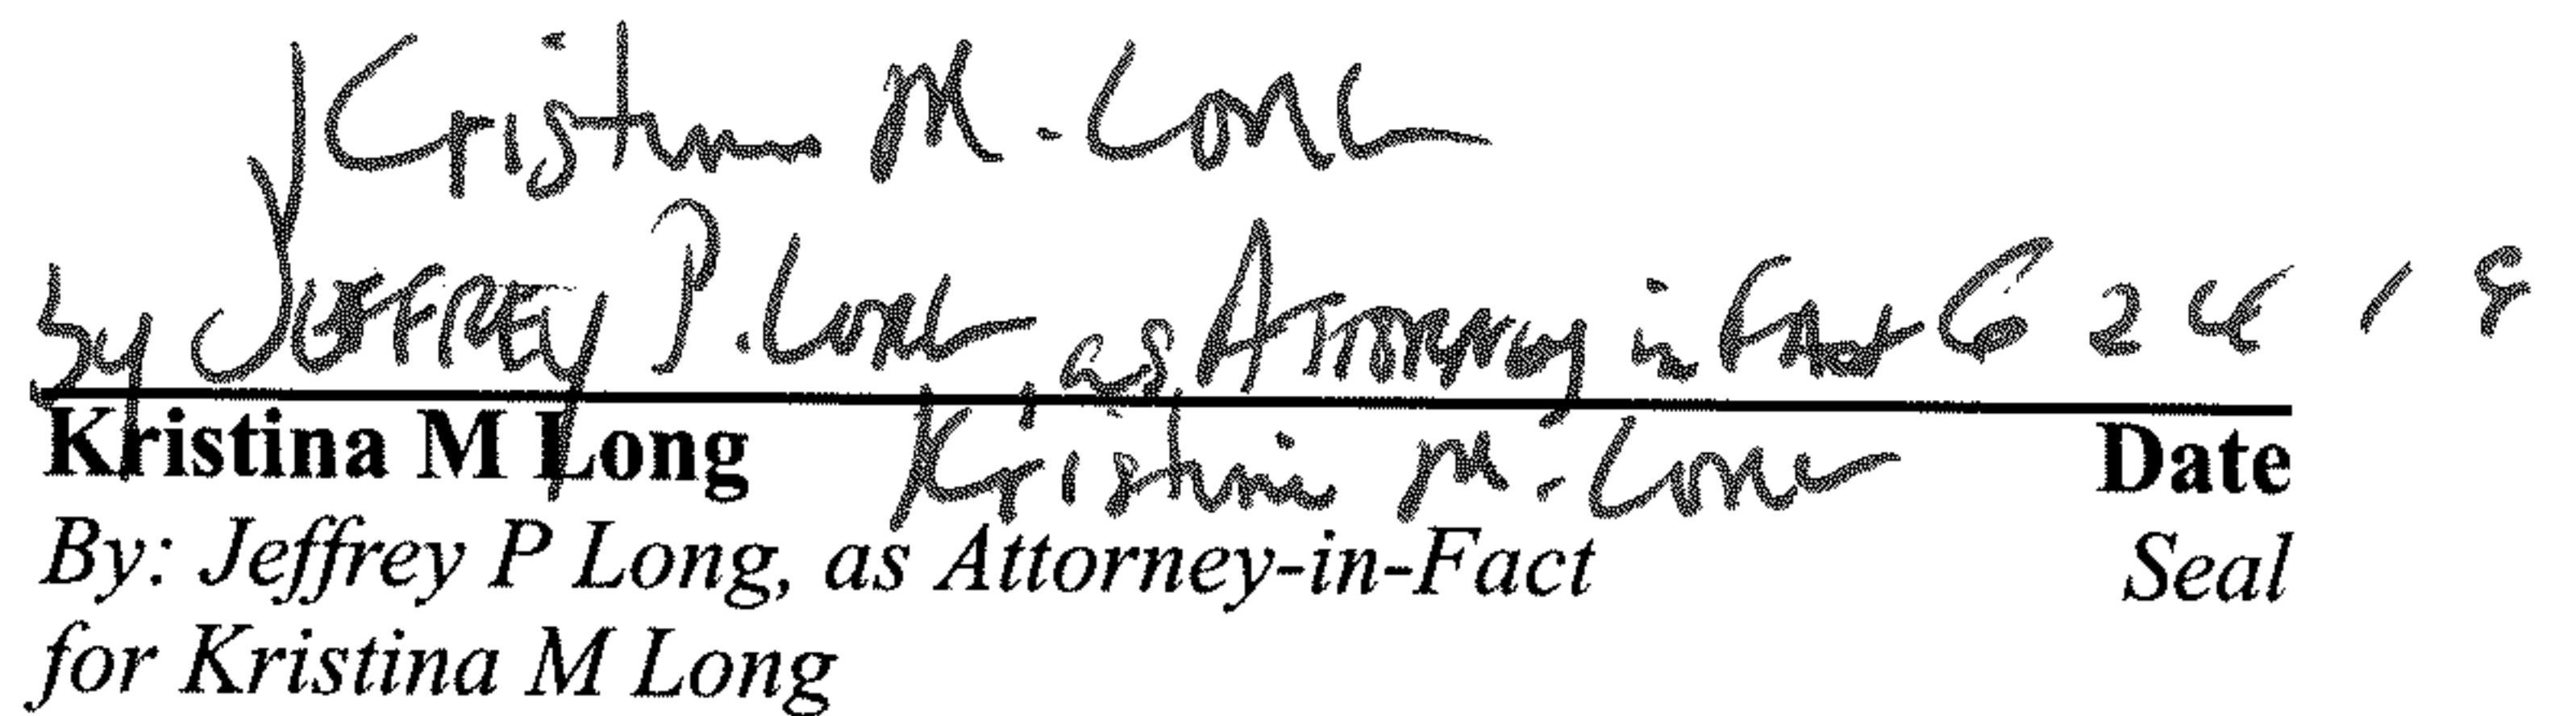 Kristina M. Long
by Jeffrey P. Long, as Attorney in Fact 6 24 18
Kristina M Long Kristina M. Long Date
By: Jeffrey P Long, as Attorney-in-Fact Seal
for Kristina M Long